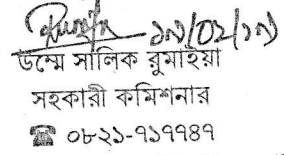 ১৯/০২/১৭
উম্মে সালিক রুমাইয়া
সহকারী কমিশনার
☎ ০৮২১-৭১৭৭৪৭